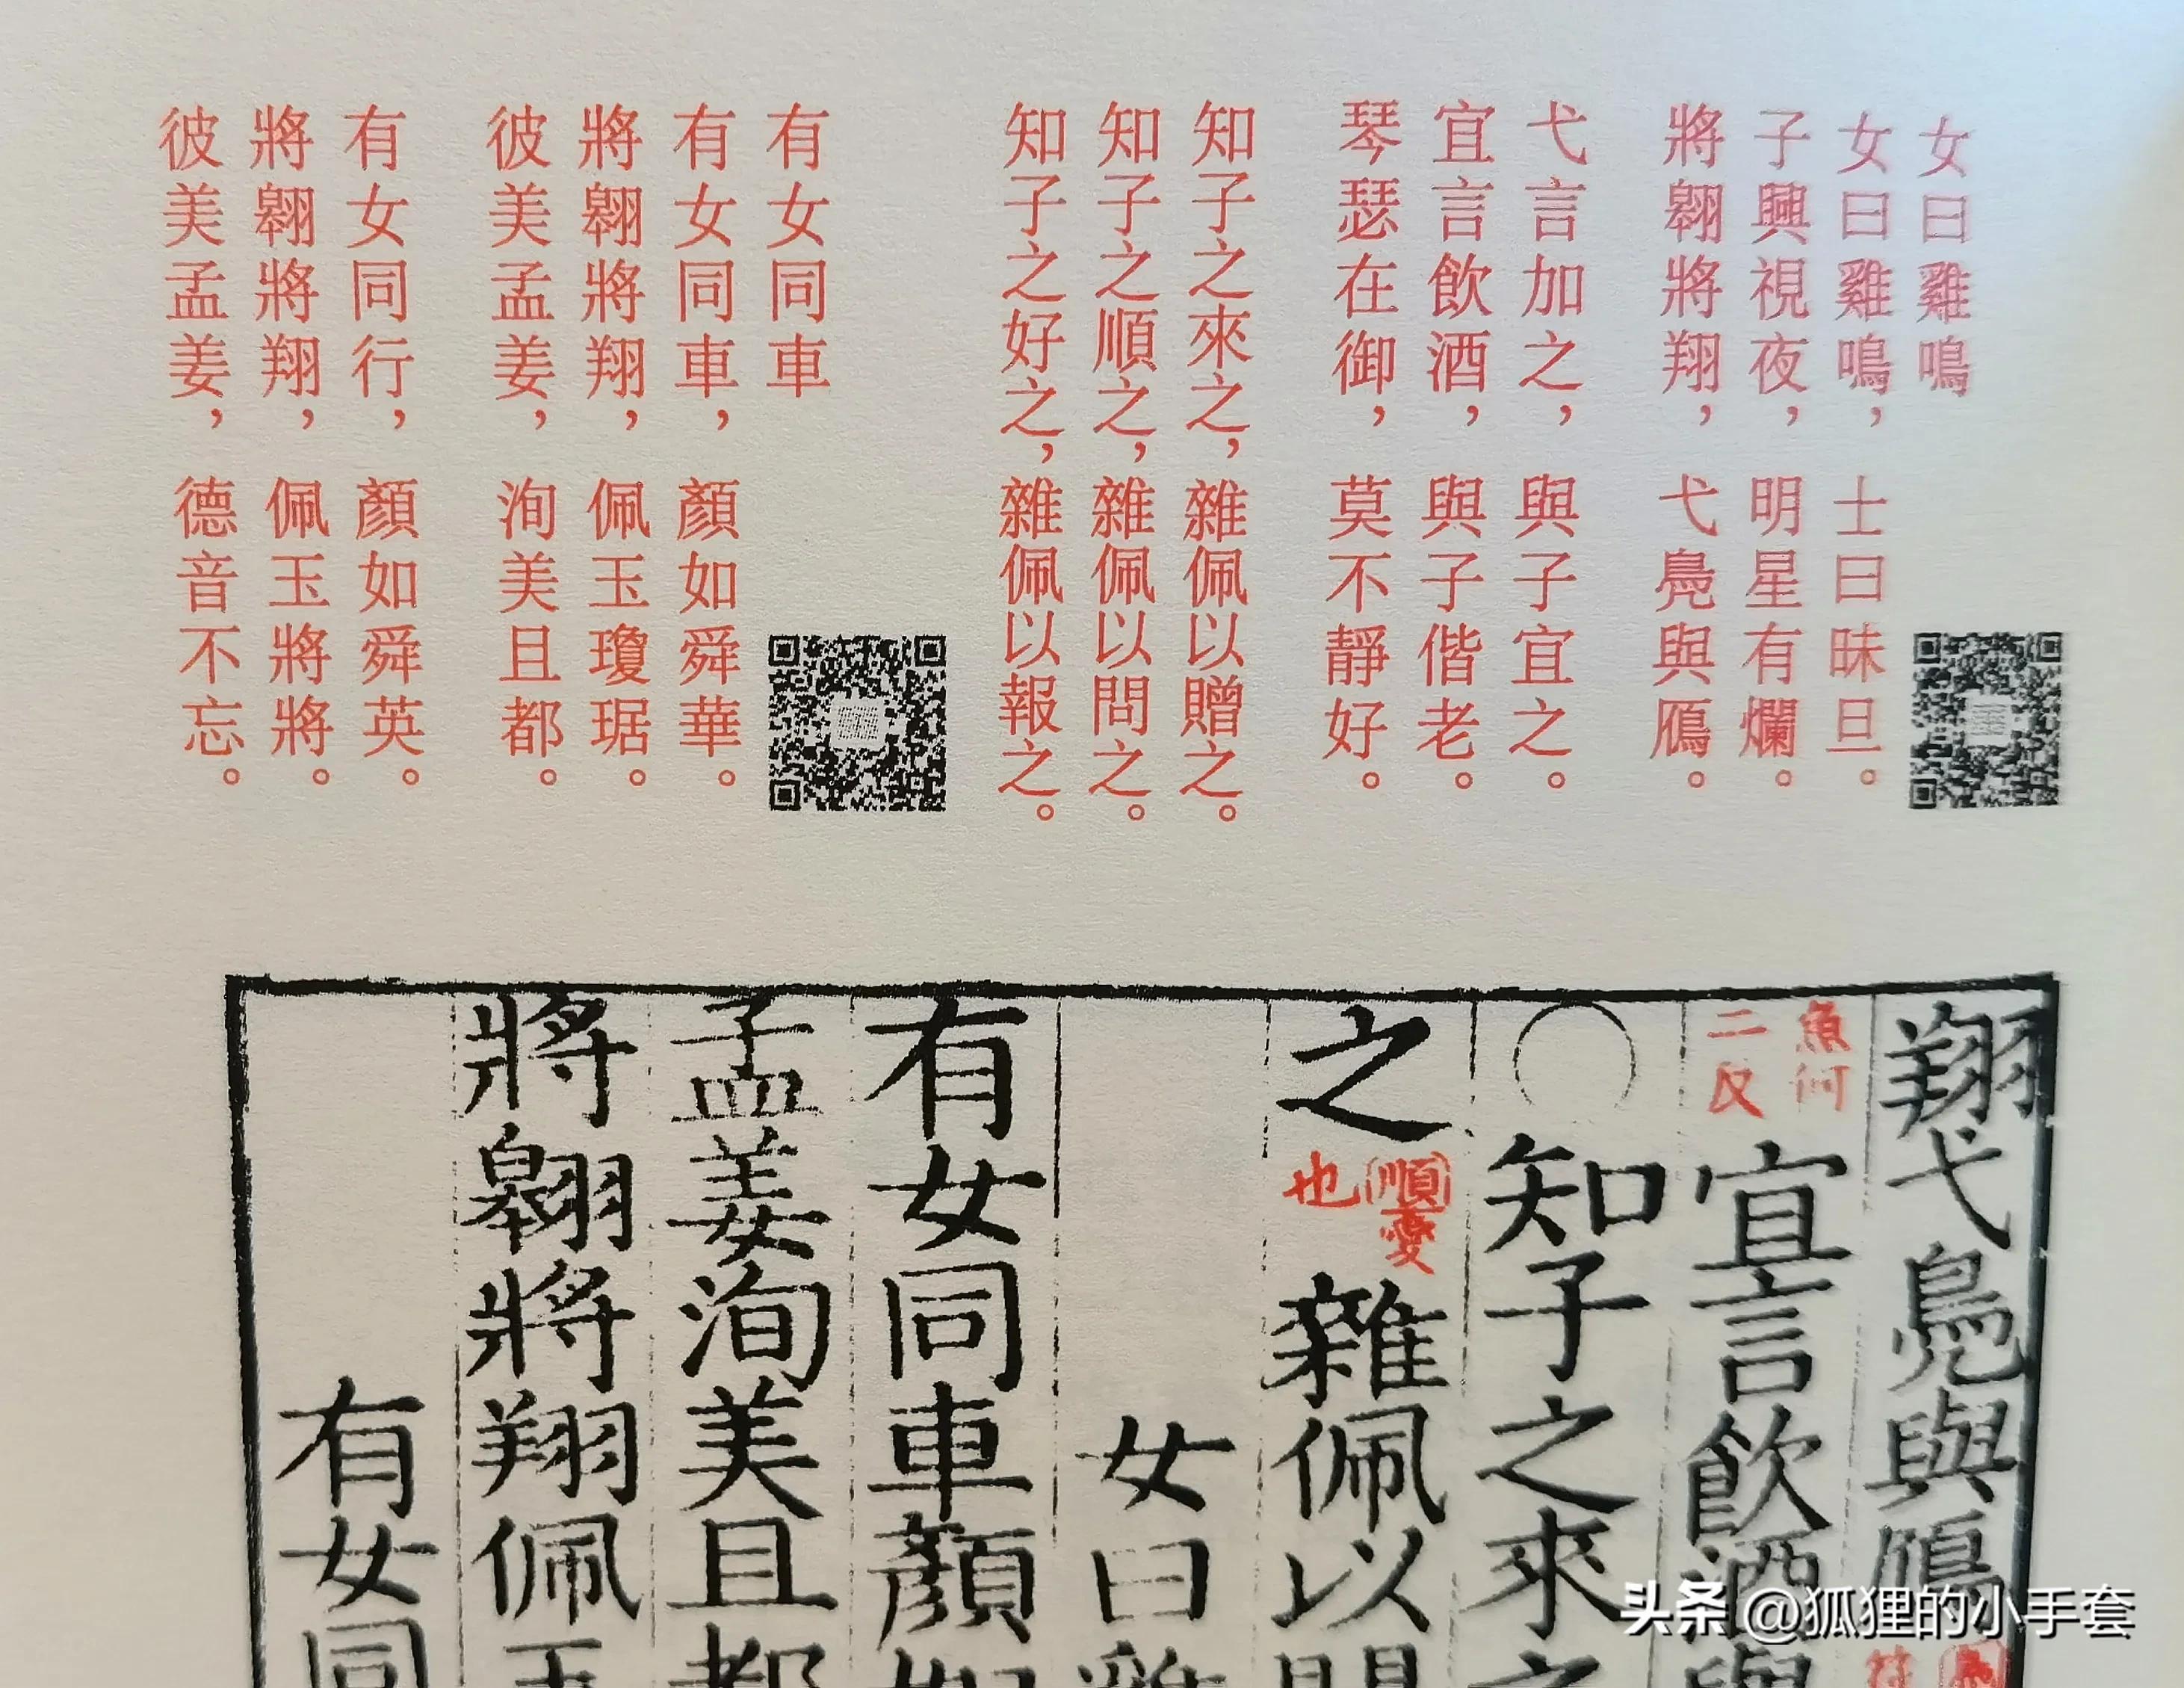 女曰雞鳴
女曰雞鳴，士曰昧旦。
子興視夜，明星有爛。
將翱將翔，弋鳧與鴈。
弋言加之，與子宜之。
宜言飲酒，與子偕老。
琴瑟在御，莫不靜好。
知子之來之，雜佩以贈之。
知子之順之，雜佩以問之。
知子之好之，雜佩以報之。
有女同車
有女同車，顏如舜華。
將翱將翔，佩玉瓊琚。
彼美孟姜，洵美且都。
有女同行，顏如舜英。
將翱將翔，佩玉將將。
彼美孟姜，德音不忘。
翔弋鳧與鴈
魚何
二反
宜言飲酒與
○知子之來之
之
順愛
也
雜佩以問
女曰雞
有女同車顏如
孟姜洵美且都
將翱將翔佩玉
有女同
头条 @狐狸的小手套